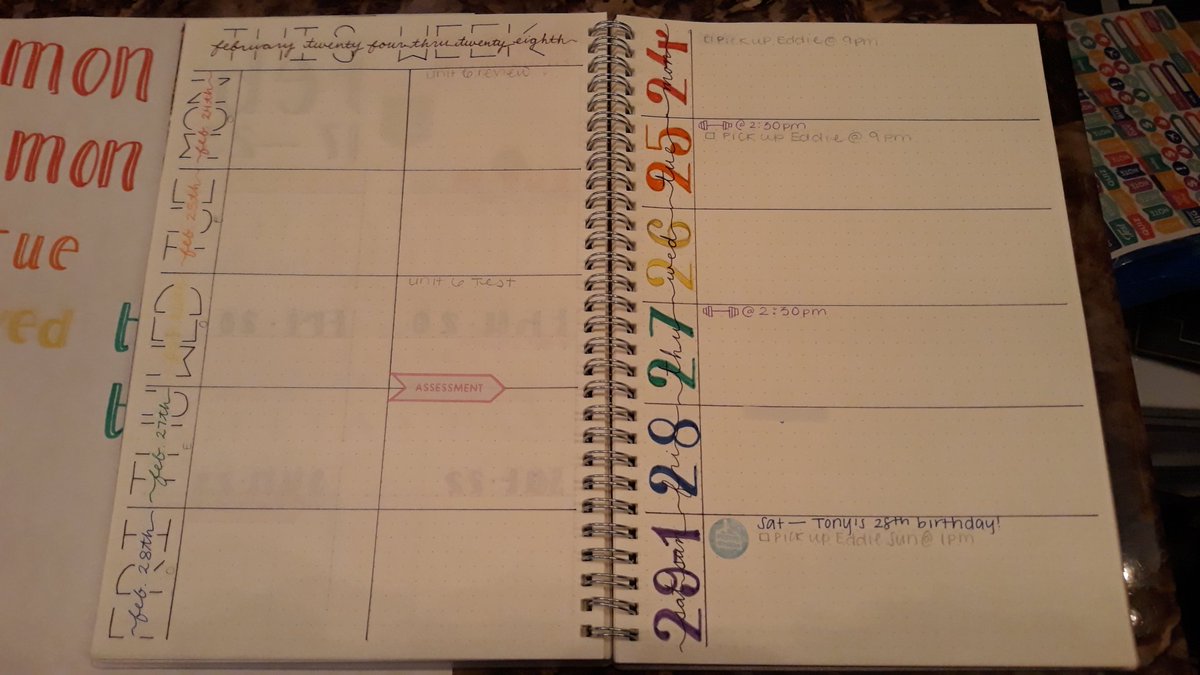 mon
mon
Tue
red
t
t
THIS WEEK
february twenty four thru twenty eighth
MON
feb. 24th
unit 6 review
TUE
feb. 25th
WED
unit 6 Test
THU
feb. 27th
ASSESSMENT
FRI
feb. 28th
24
mon
PICK UP Eddie @ 9pm
25
tue
@ 2:30pm
PICK UP Eddie @ 9pm
26
wed
27
thu
@ 2:30pm
28
fri
291
sat sun
Sat — Tony's 28th birthday!
PICK UP Eddie Sun @ 1pm